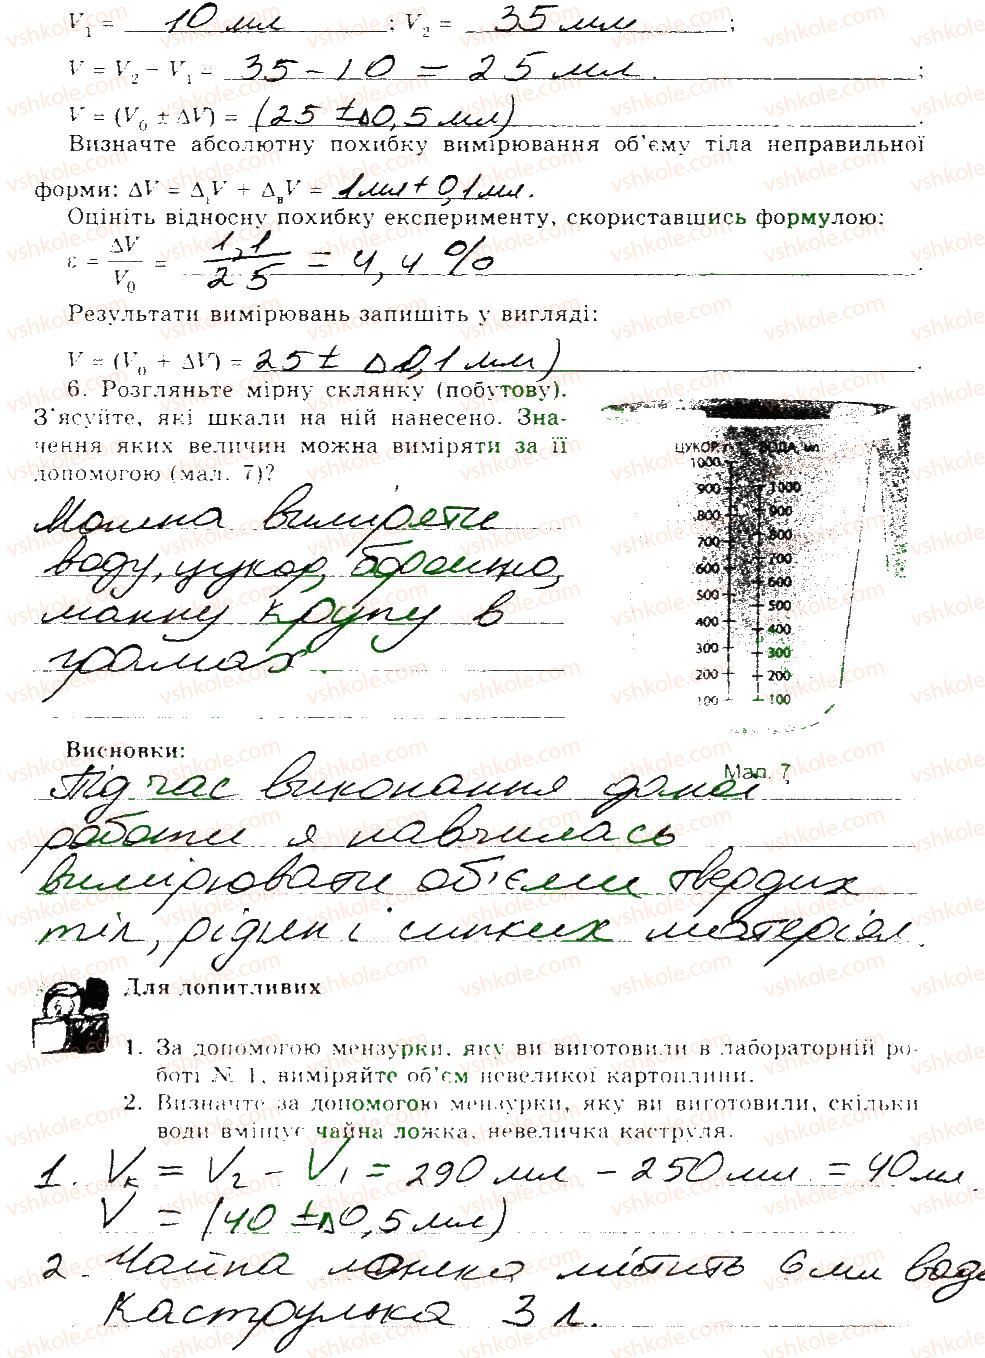 V₁ = 10 мл ; V₂ = 35 мл ;
V = V₂ − V₁ = 35 − 10 = 25 мл. ;
V = (V₀ ± ΔV) = (25 ± Δ0,5 мл) .
Визначте абсолютну похибку вимірювання об'єму тіла неправильної
форми: ΔV = ΔᵢV + ΔвV = 1мл + 0,1мл.
Оцініть відносну похибку експерименту, скориставшись формулою:
ε = ΔV/V₀ = 1,1/25 = 4,4 % .
Результати вимірювань запишіть у вигляді:
V = (V₀ + ΔV) = 25 ± Δ0,1 мл) .
6. Розгляньте мірну склянку (побутову).
З'ясуйте, які шкали на ній нанесено. Зна-
чення яких величин можна виміряти за її
допомогою (мал. 7)?
Можна виміряти
воду, цукор, борошно,
манну крупу в
грамах.
ЦУКОР, г ВОДА, мл
1000
900 1000
800 900
700 800
600 700
500 600
400 500
300 400
200 300
100 200
100
Мал. 7
Висновки:
Під час виконання даної
работи я навчилась
вимірювати об'єми твердих
тіл, рідин і сипких матеріал.
Для допитливих
1. За допомогою мензурки, яку ви виготовили в лабораторній ро-
боті № 1, виміряйте об'єм невеликої картоплини.
2. Визначте за допомогою мензурки, яку ви виготовили, скільки
води вміщує чайна ложка, невеличка каструля.
1. Vк = V₂ − V₁ = 290 мл − 250 мл = 40 мл.
V = (40 ± Δ0,5 мл)
2. Чайна ложка містить 6 мл води
Каструлька 3 л.